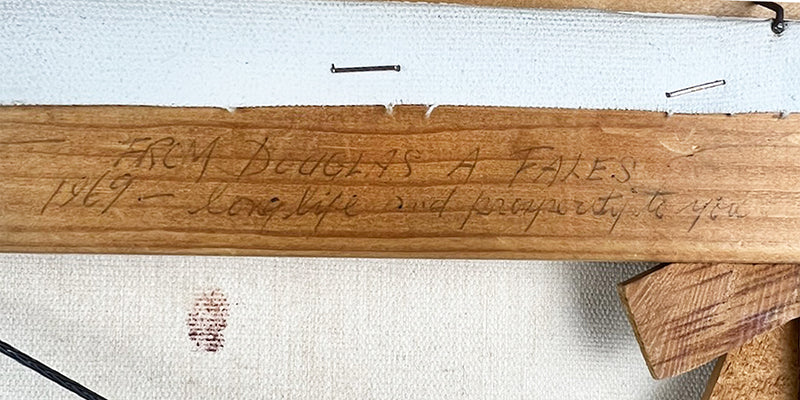 FROM DOUGLAS A FALES
1969 – long life and prosperity to you